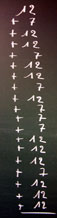 12
+ 7
+ 12
+ 12
+ 7
+ 12
+ 7
+ 12
+ 7
+ 7
+ 12
+ 7
+ 12
+ 12
+ 7
+ 12
+ 12
+ 12